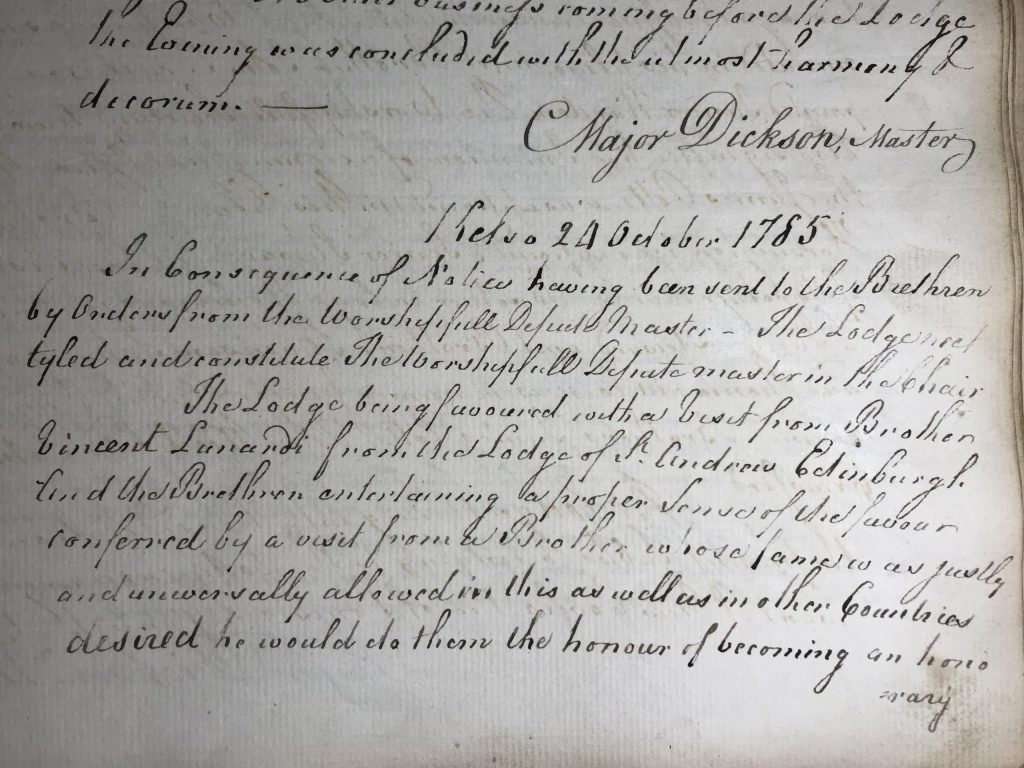 business coming before the Lodge
the Evening was concluded with the utmost harmony &
decorum. —
Major Dickson, Master
Kelso 24 October 1785
In Consequence of Notices having been sent to the Brethren
by Orders from the Worshipfull Depute Master – The Lodge met
tyled and constitute The Worshipfull Depute master in the Chair
The Lodge being favoured with a Visit from Brother
Vincent Lunardi from the Lodge of St. Andrew Edinburgh
And the Brethren entertaining a proper Sense of the favour
conferred by a visit from a Brother whose fame was justly
and universally allowed in this as well as in other Countries
desired he would do them the honour of becoming an hono
=rary